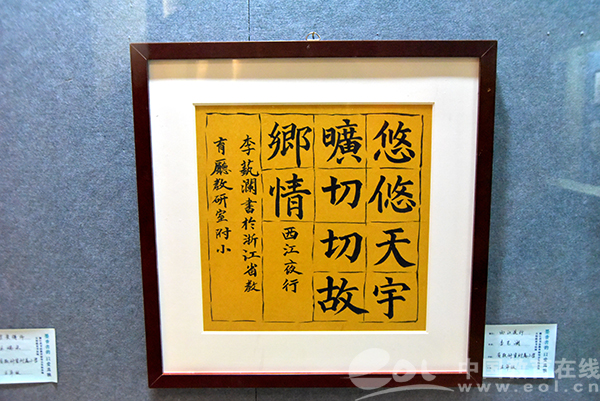 悠悠天宇
曠切切故
鄉情
西江夜行
李藝瀾書於浙江省教
育廳教研室附小
中国教育在线
eol
www.eol.cn